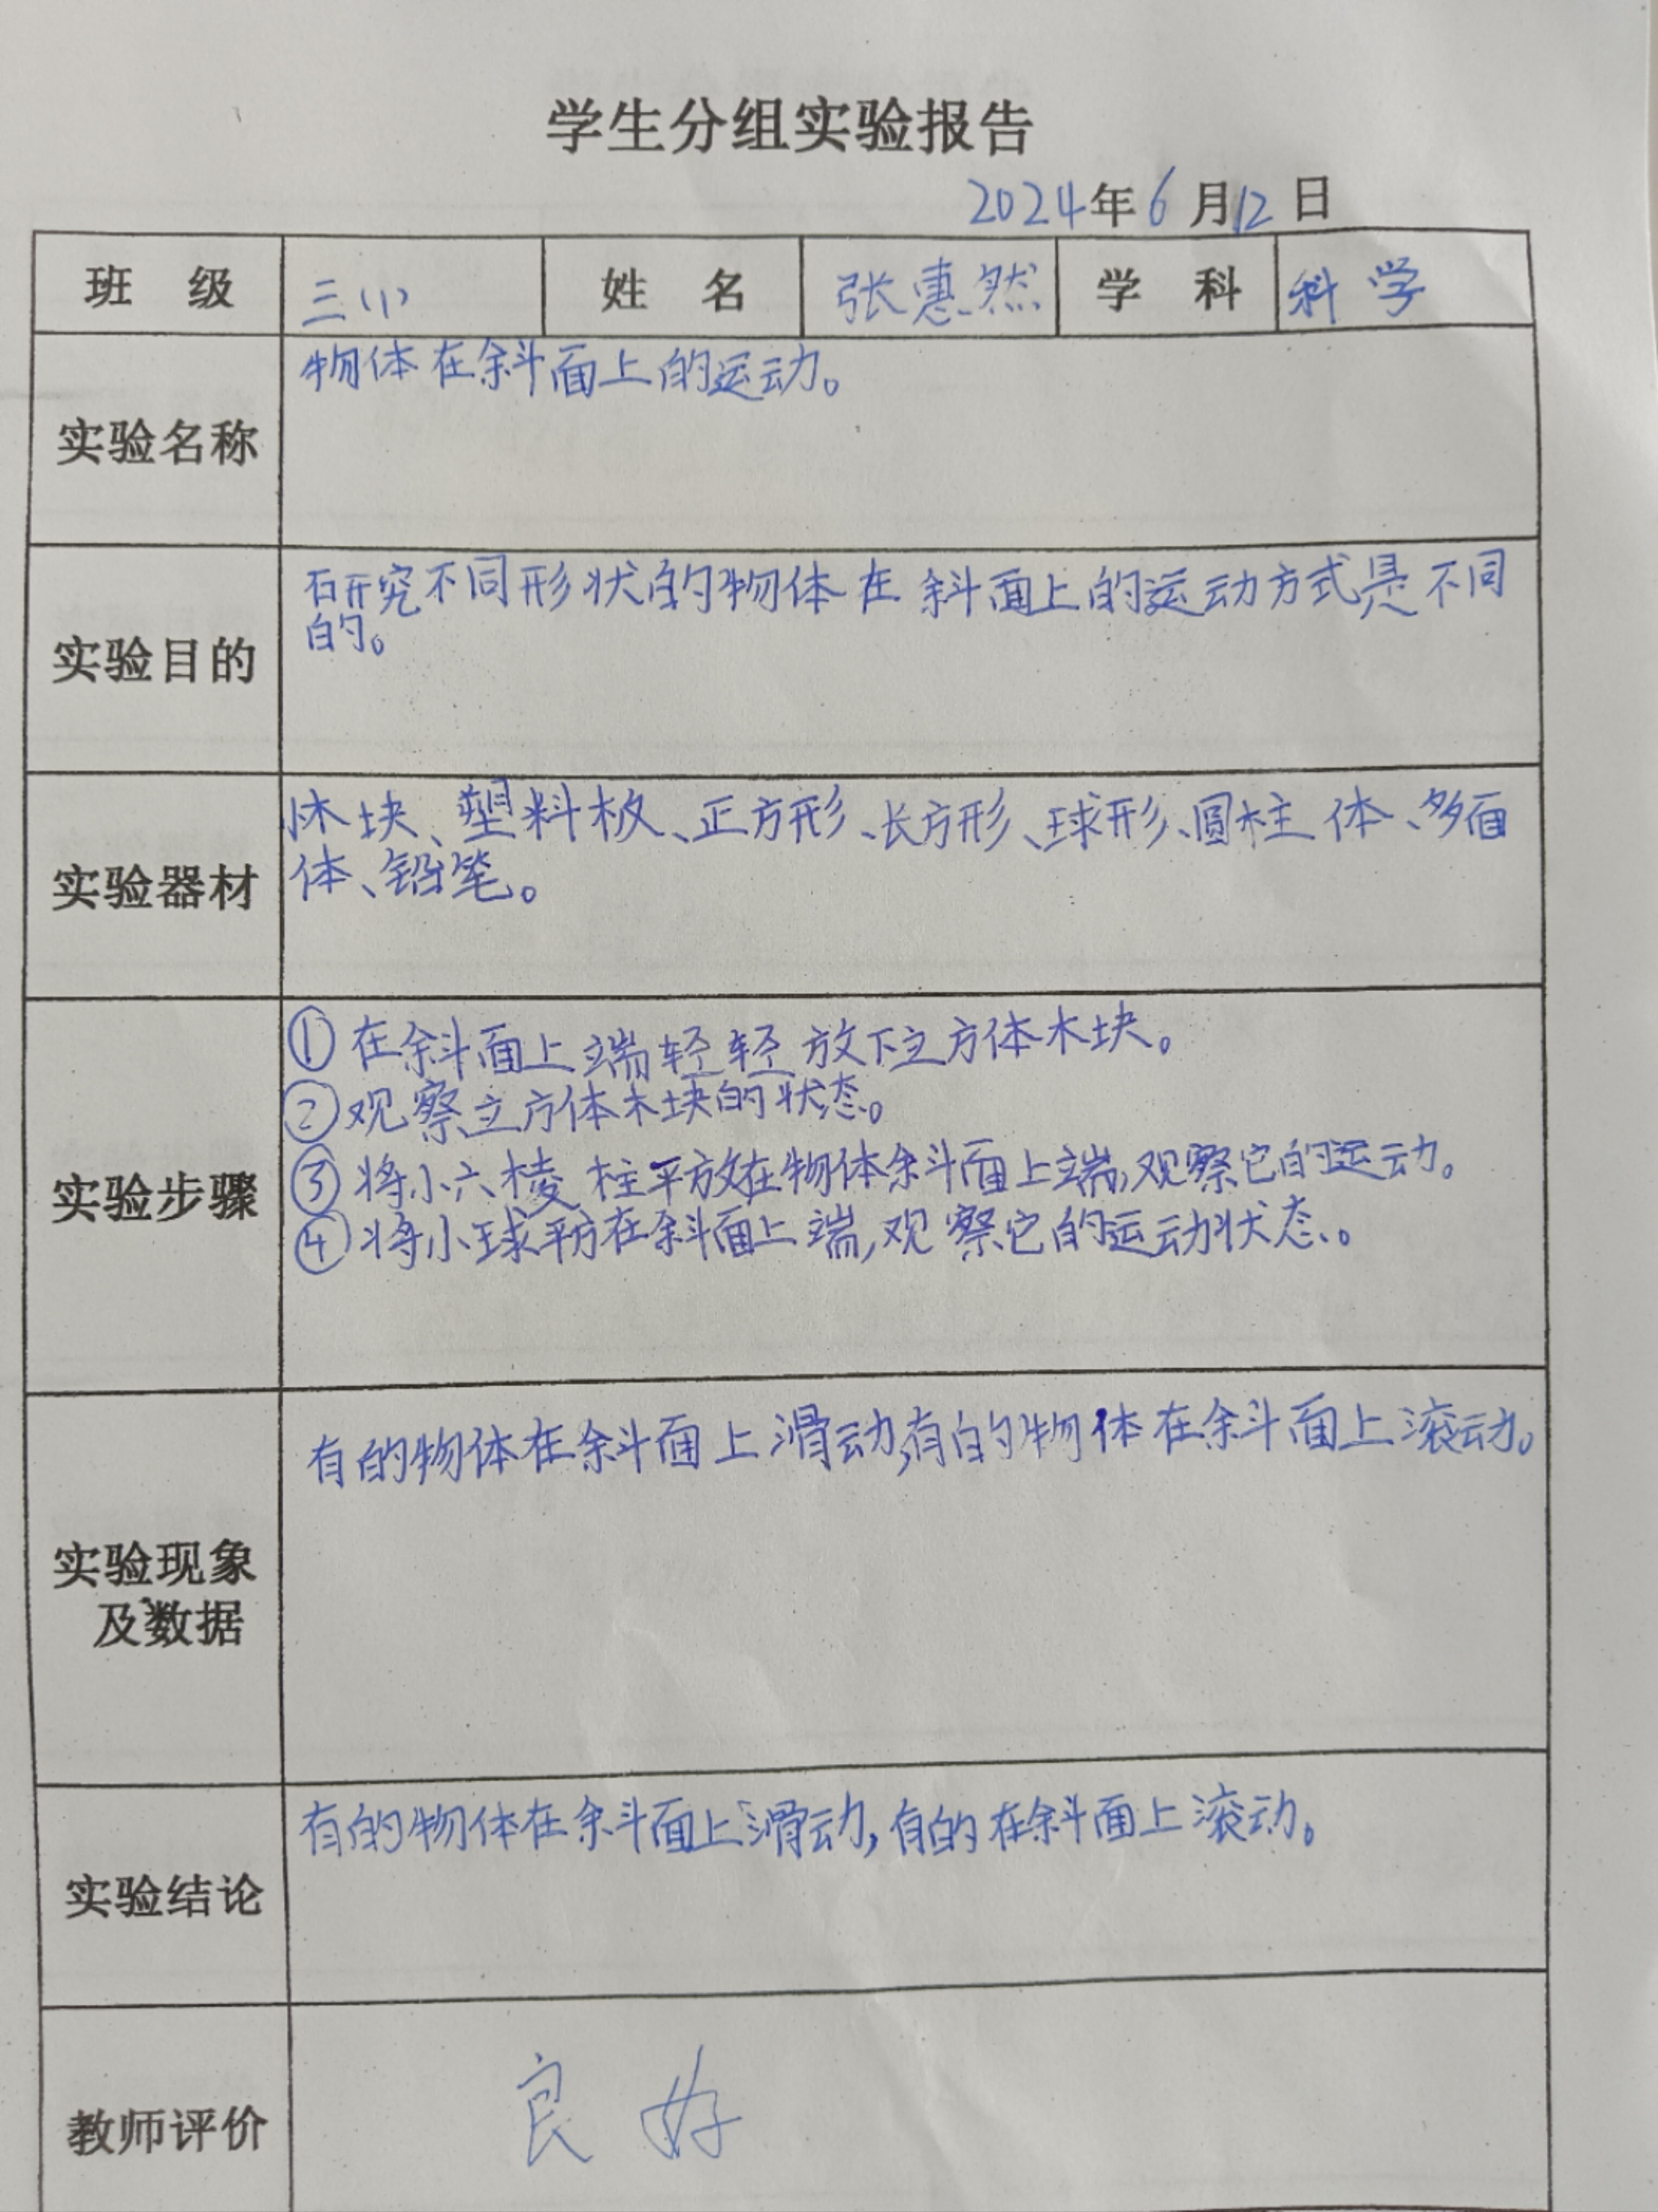 学生分组实验报告
2024年6月12日
班 级 三(1) 姓 名 张惠然 学 科 科学
实验名称
物体在斜面上的运动。
实验目的
研究不同形状的物体在斜面上的运动方式是不同
的。
实验器材
木块、塑料板、正方形、长方形、球形、圆柱体、多面
体、铅笔。
实验步骤
①在斜面上端轻轻放下立方体木块。
②观察立方体木块的状态。
③将小六棱柱平放在物体斜面上端,观察它的运动。
④将小球平方在斜面上端,观察它的运动状态。
实验现象
及数据
有的物体在斜面上滑动,有的物体在斜面上滚动。
实验结论
有的物体在斜面上滑动,有的在斜面上滚动。
教师评价
良好